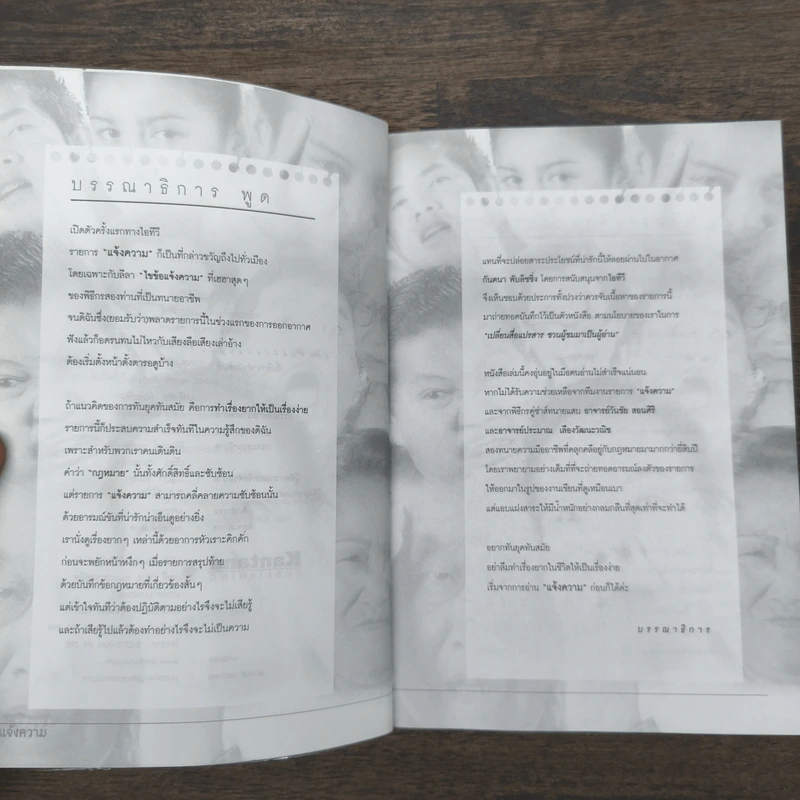 บรรณาธิการ พูด
เปิดตัวครั้งแรกทางไอทีวี
รายการ "แจ้งความ" ก็เป็นที่กล่าวขวัญถึงไปทั่วเมือง
โดยเฉพาะกับลีลา "ไขข้อแจ้งความ" ที่เฮฮาสุดๆ
ของพิธีกรสองท่านที่เป็นทนายอาชีพ
จนดิฉันซึ่ง(ยอมรับว่า)พลาดรายการนี้ในช่วงแรกของการออกอากาศ
ฟังแล้วก็อดรนทนไม่ไหวกับเสียงลือเสียงเล่าอ้าง
ต้องเริ่มตั้งหน้าตั้งตารอดูบ้าง
ถ้าแนวคิดของการทันยุคทันสมัย คือการทำเรื่องยากให้เป็นเรื่องง่าย
รายการนี้ก็ประสบความสำเร็จทันทีในความรู้สึกของดิฉัน
เพราะสำหรับพวกเราคนเดินดิน
คำว่า "กฎหมาย" นั้นทั้งศักดิ์สิทธิ์และซับซ้อน
แต่รายการ "แจ้งความ" สามารถคลี่คลายความซับซ้อนนั้น
ด้วยอารมณ์ขันที่น่ารักน่าเอ็นดูอย่างยิ่ง
เรานั่งดูเรื่องยากๆ เหล่านี้ด้วยอาการหัวเราะคิกคัก
ก่อนจะพยักหน้าหงึกๆ เมื่อรายการสรุปท้าย
ด้วยบันทึกข้อกฎหมายที่เกี่ยวข้องสั้นๆ
แต่เข้าใจทันทีว่าต้องปฏิบัติตามอย่างไรจึงจะไม่เสียรู้
และถ้าเสียรู้ไปแล้วต้องทำอย่างไรจึงจะไม่เป็นความ
แจ้งความ
แทนที่จะปล่อยสาระประโยชน์ที่น่ารักนี้ให้ลอยผ่านไปในอากาศ
กันตนา พับลิชชิ่ง โดยการสนับสนุนจากไอทีวี
จึงเห็นชอบด้วยประการทั้งปวงว่าควรจับเนื้อหาของรายการนี้
มาถ่ายทอดบันทึกไว้เป็นตัวหนังสือ ตามนโยบายของเราในการ
"เปลี่ยนสื่อแปรสาร ชวนผู้ชมมาเป็นผู้อ่าน"
หนังสือเล่มนี้คงอุ่นอยู่ในมือคนอ่านไม่สำเร็จแน่นอน
หากไม่ได้รับความช่วยเหลือจากทีมงานรายการ "แจ้งความ"
และจากพิธีกรคู่ซ่าส์ทนายแสบ อาจารย์วันชัย สอนศิริ
และอาจารย์ประมาณ เลืองวัฒนะวณิช
สองทนายความมืออาชีพที่คลุกคลีอยู่กับกฎหมายมามากกว่ายี่สิบปี
โดยเราพยายามอย่างเต็มที่ที่จะถ่ายทอดอารมณ์ลงตัวของรายการ
ให้ออกมาในรูปของงานเขียนที่ดูเหมือนเบา
แต่แอบแฝงสาระให้มีน้ำหนักอย่างกลมกลืนที่สุดเท่าที่จะทำได้
อยากทันยุคทันสมัย
อย่าลืมทำเรื่องยากในชีวิตให้เป็นเรื่องง่าย
เริ่มจากการอ่าน "แจ้งความ" ก่อนก็ได้ค่ะ
บรรณาธิการ